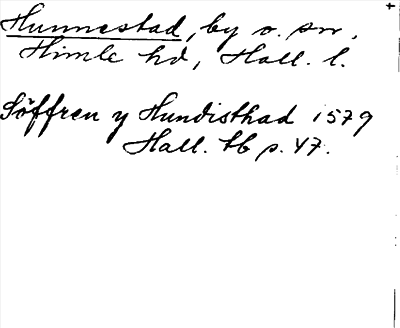 Hunnestad, by o. sn,
Himle hd, Hall. l.
Söffren y Hundisthad 1579
Hall. tb p. 47.